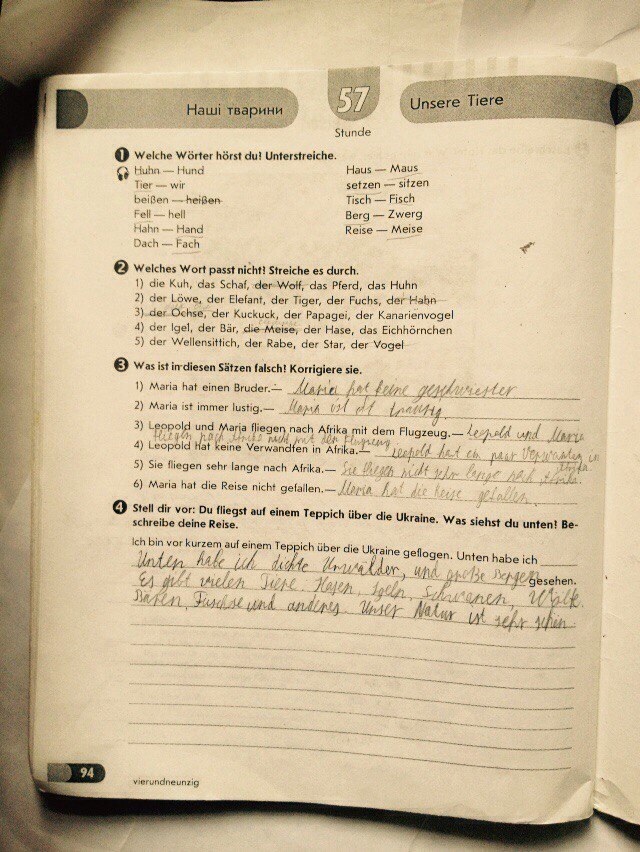 Наші тварини
57
Unsere Tiere
Stunde
1 Welche Wörter hörst du? Unterstreiche.
Huhn — Hund
Tier — wir
beißen — heißen
Fell — hell
Hahn — Hand
Dach — Fach
Haus — Maus
setzen — sitzen
Tisch — Fisch
Berg — Zwerg
Reise — Meise
2 Welches Wort passt nicht? Streiche es durch.
1) die Kuh, das Schaf, der Wolf, das Pferd, das Huhn
2) der Löwe, der Elefant, der Tiger, der Fuchs, der Hahn
3) der Ochse, der Kuckuck, der Papagei, der Kanarienvogel
4) der Igel, der Bär, die Meise, der Hase, das Eichhörnchen
5) der Wellensittich, der Rabe, der Star, der Vogel
3 Was ist in diesen Sätzen falsch? Korrigiere sie.
1) Maria hat einen Bruder.— Maria hat keine geschwiester
2) Maria ist immer lustig.— Maria ist oft traurig.
3) Leopold und Maria fliegen nach Afrika mit dem Flugzeug.— Leopold und Maria
fliegen nach Afrika nicht mit den Flugzeug
4) Leopold hat keine Verwandten in Afrika.— Leopold hat ein paar Verwanten in
Afrika
5) Sie fliegen sehr lange nach Afrika.— Sie fliegen nicht sehr lange nach Afrika.
6) Maria hat die Reise nicht gefallen.— Maria hat die Reise gefallen.
4 Stell dir vor: Du fliegst auf einem Teppich über die Ukraine. Was siehst du unten? Be-
schreibe deine Reise.
Ich bin vor kurzem auf einem Teppich über die Ukraine geflogen. Unten habe ich
Unten habe ich dichte Urwälder, und große Bergen gesehen.
Es gibt vielen Tiere, Hasen, Igeln, Schwanen, Wölfe.
Bären, Fuschse und anderes. Unser Natur ist sehr schen.
94
vierundneunzig